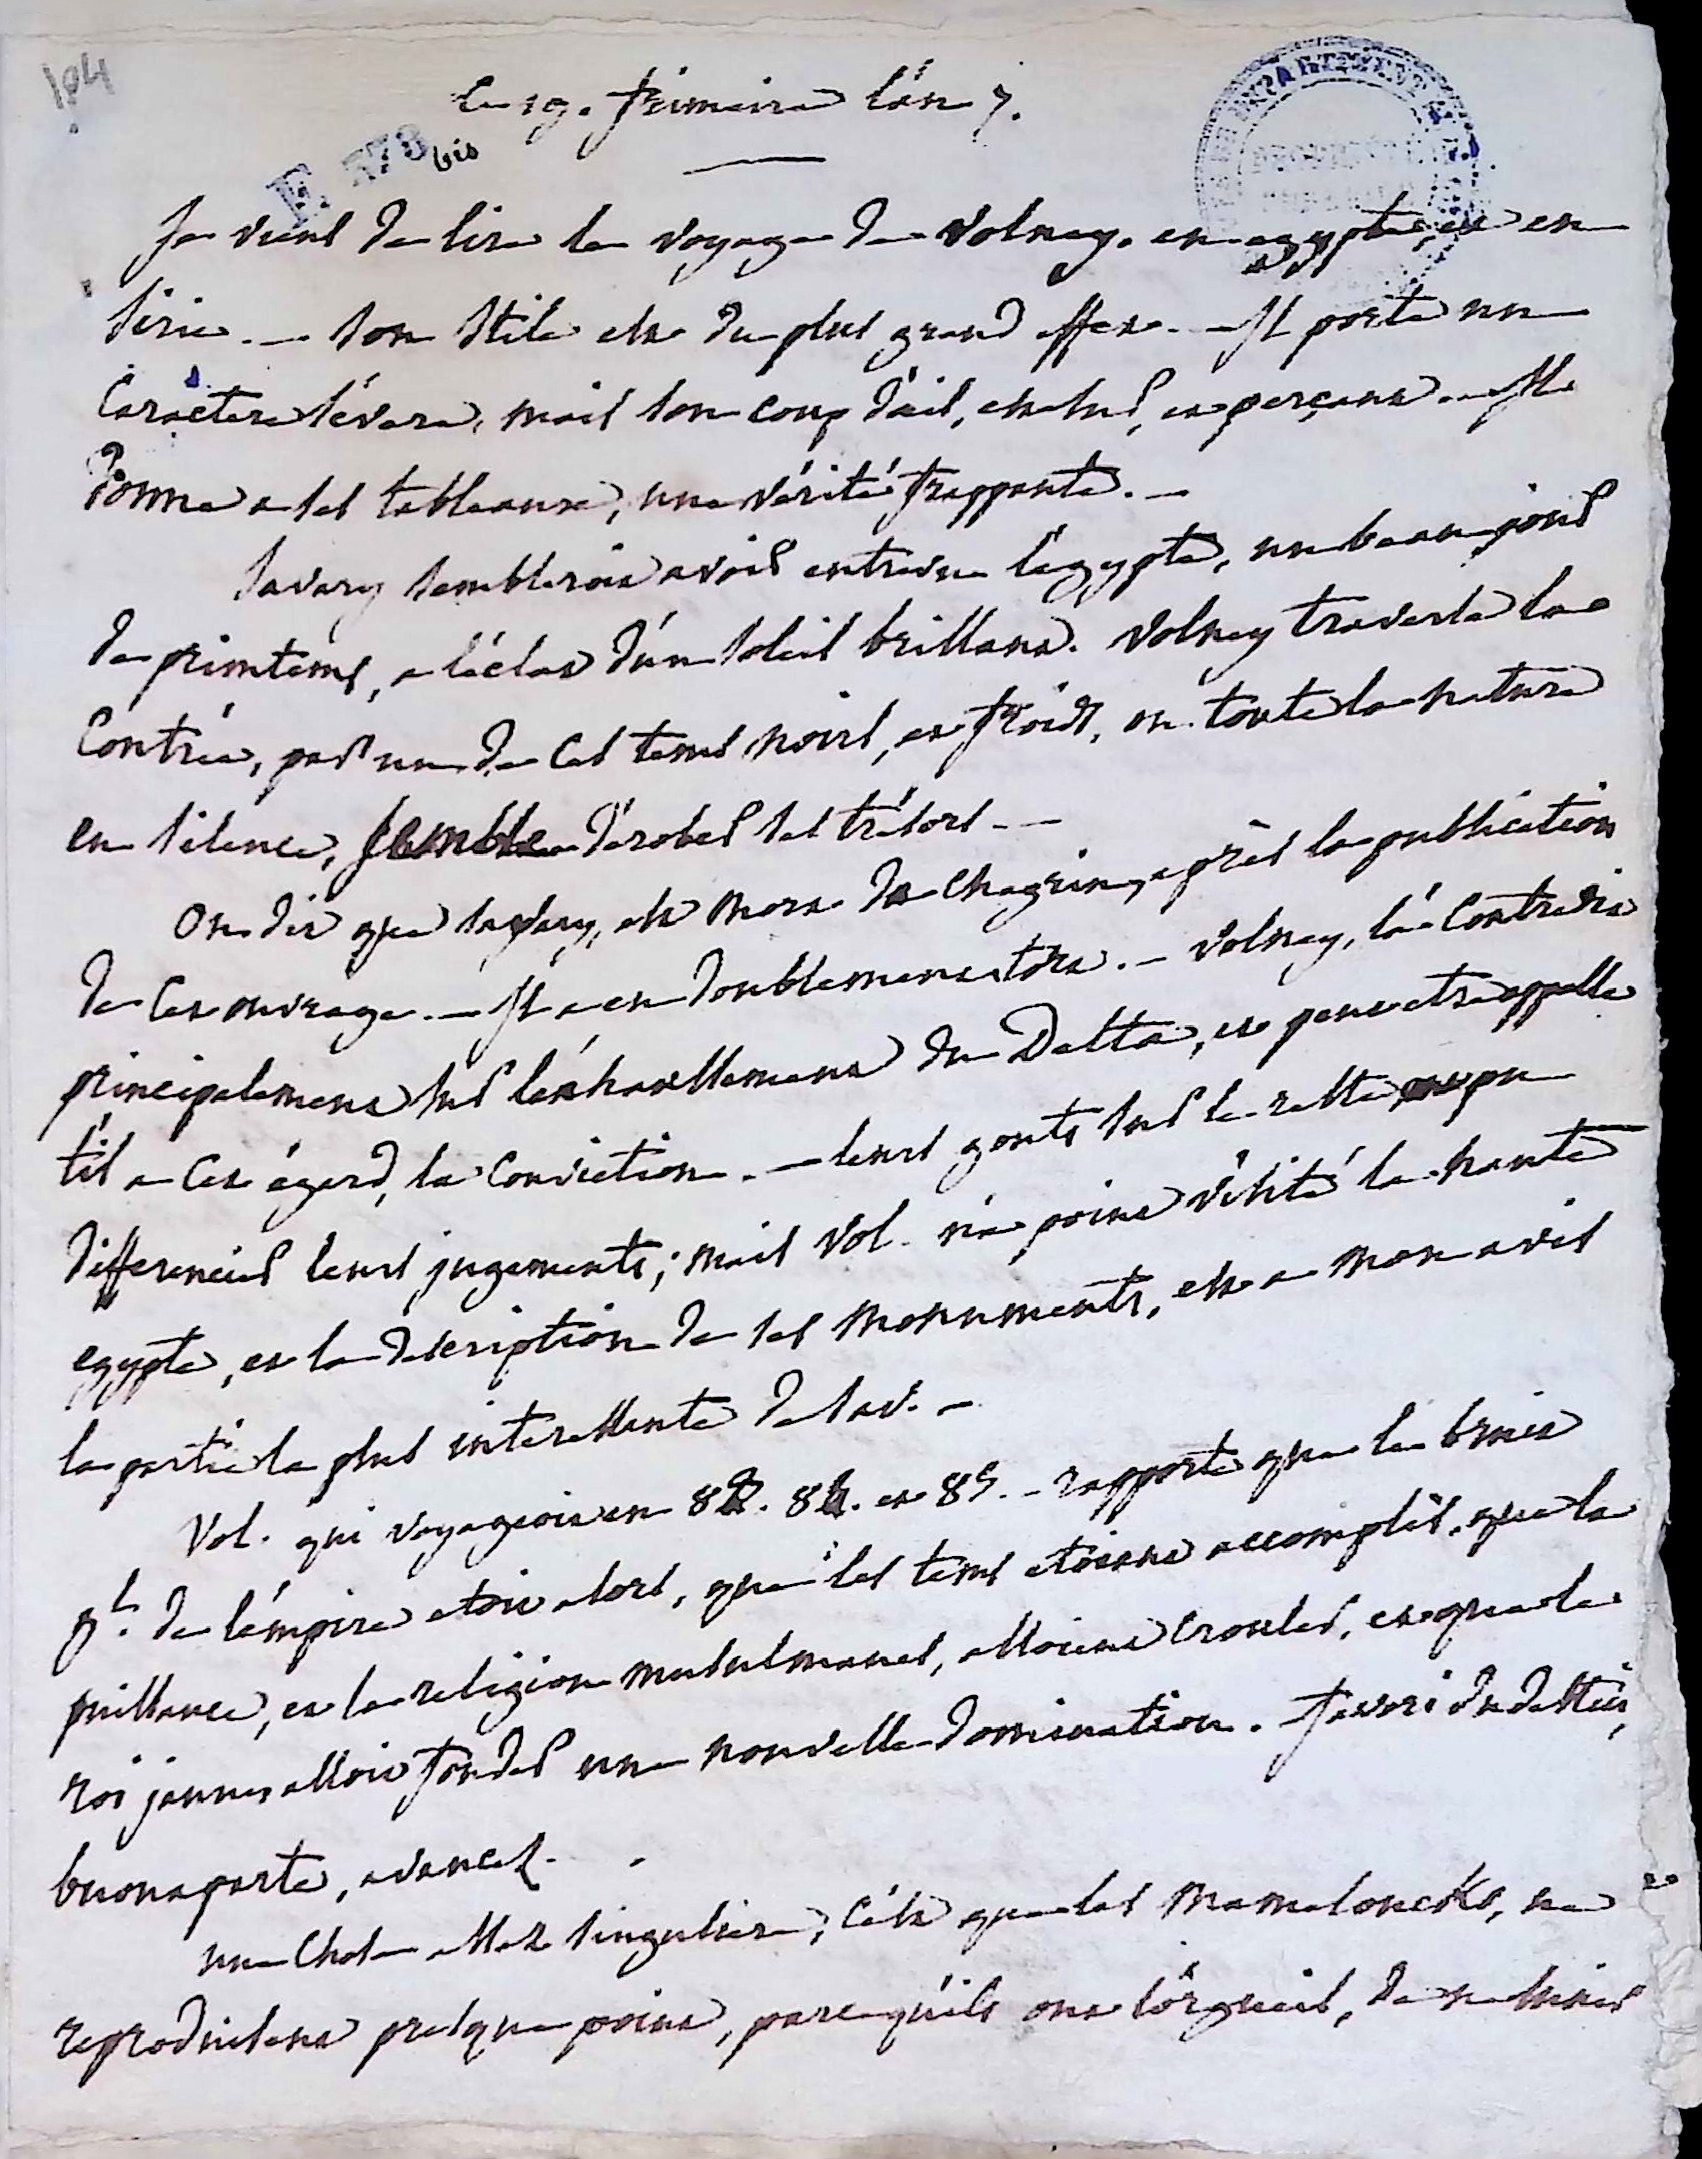 104
le 19. frimaire l'an 7.
E 378 bis
je viens de lire le voyage de volney. en egypte, et en
sirie. — son stile est du plus grand effet. — Il porte un
caractere sévere, mais son coup d'œil, est sur, et perçant. — Il
donne a ses tableaux, une vérité frappante. —
savary sembleroit avoir entrevu l'egypte, un beau jour
de printems, a l'éclat d'un soleil brillant. volney traverse la
contrée, par un de ces tems noirs, et froids, ou toute la nature
en silence, semble dérober ses trésors. —
On dit que savary, est mort de chagrin, après la publication
de cet ouvrage. — Il a eu doublement tort. — volney, l'a contredit
principalement sur l'exhaussement du Delta, et peut etre appelle
t'il a cet égard, la conviction. — leurs gouts sur le reste pu
differencier leurs jugements; mais vol. n'a point visité la haute
egypte, et la description de ses monuments, est a mon avis
la partie la plus interessante de sav. —
Vol. qui voyageoit en 83. 84. et 85. — rapporte que le bruit
gl. de l'empire etoit alors, que les tems etoient accomplis, que la
puissance, et la religion musulmanes, alloient crouler, et que le
roi jaune, alloit fonder une nouvelle domination. favori du destin,
buonaparte, avancez. .
une chose assez singuliere, c'est que les mameloucks, ne
reproduisent presque point, parcequ'ils ont l'orgueil, de ne s'unir